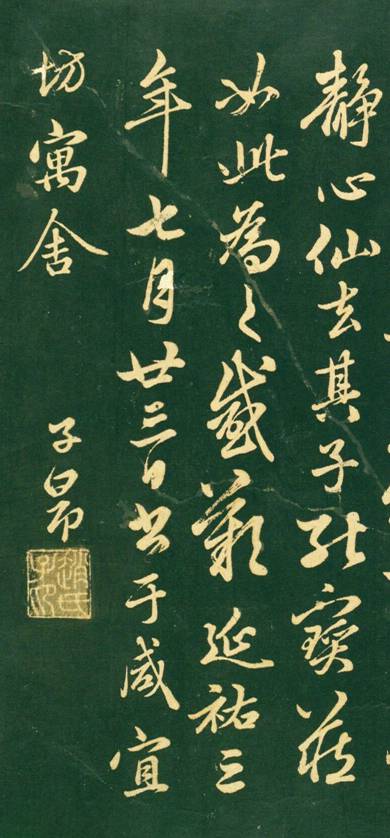 静心仙去其子能寶藏
如此為之感歎延祐三
年七月廿三日書于咸宜
坊寓舍
子昂
趙氏子昂